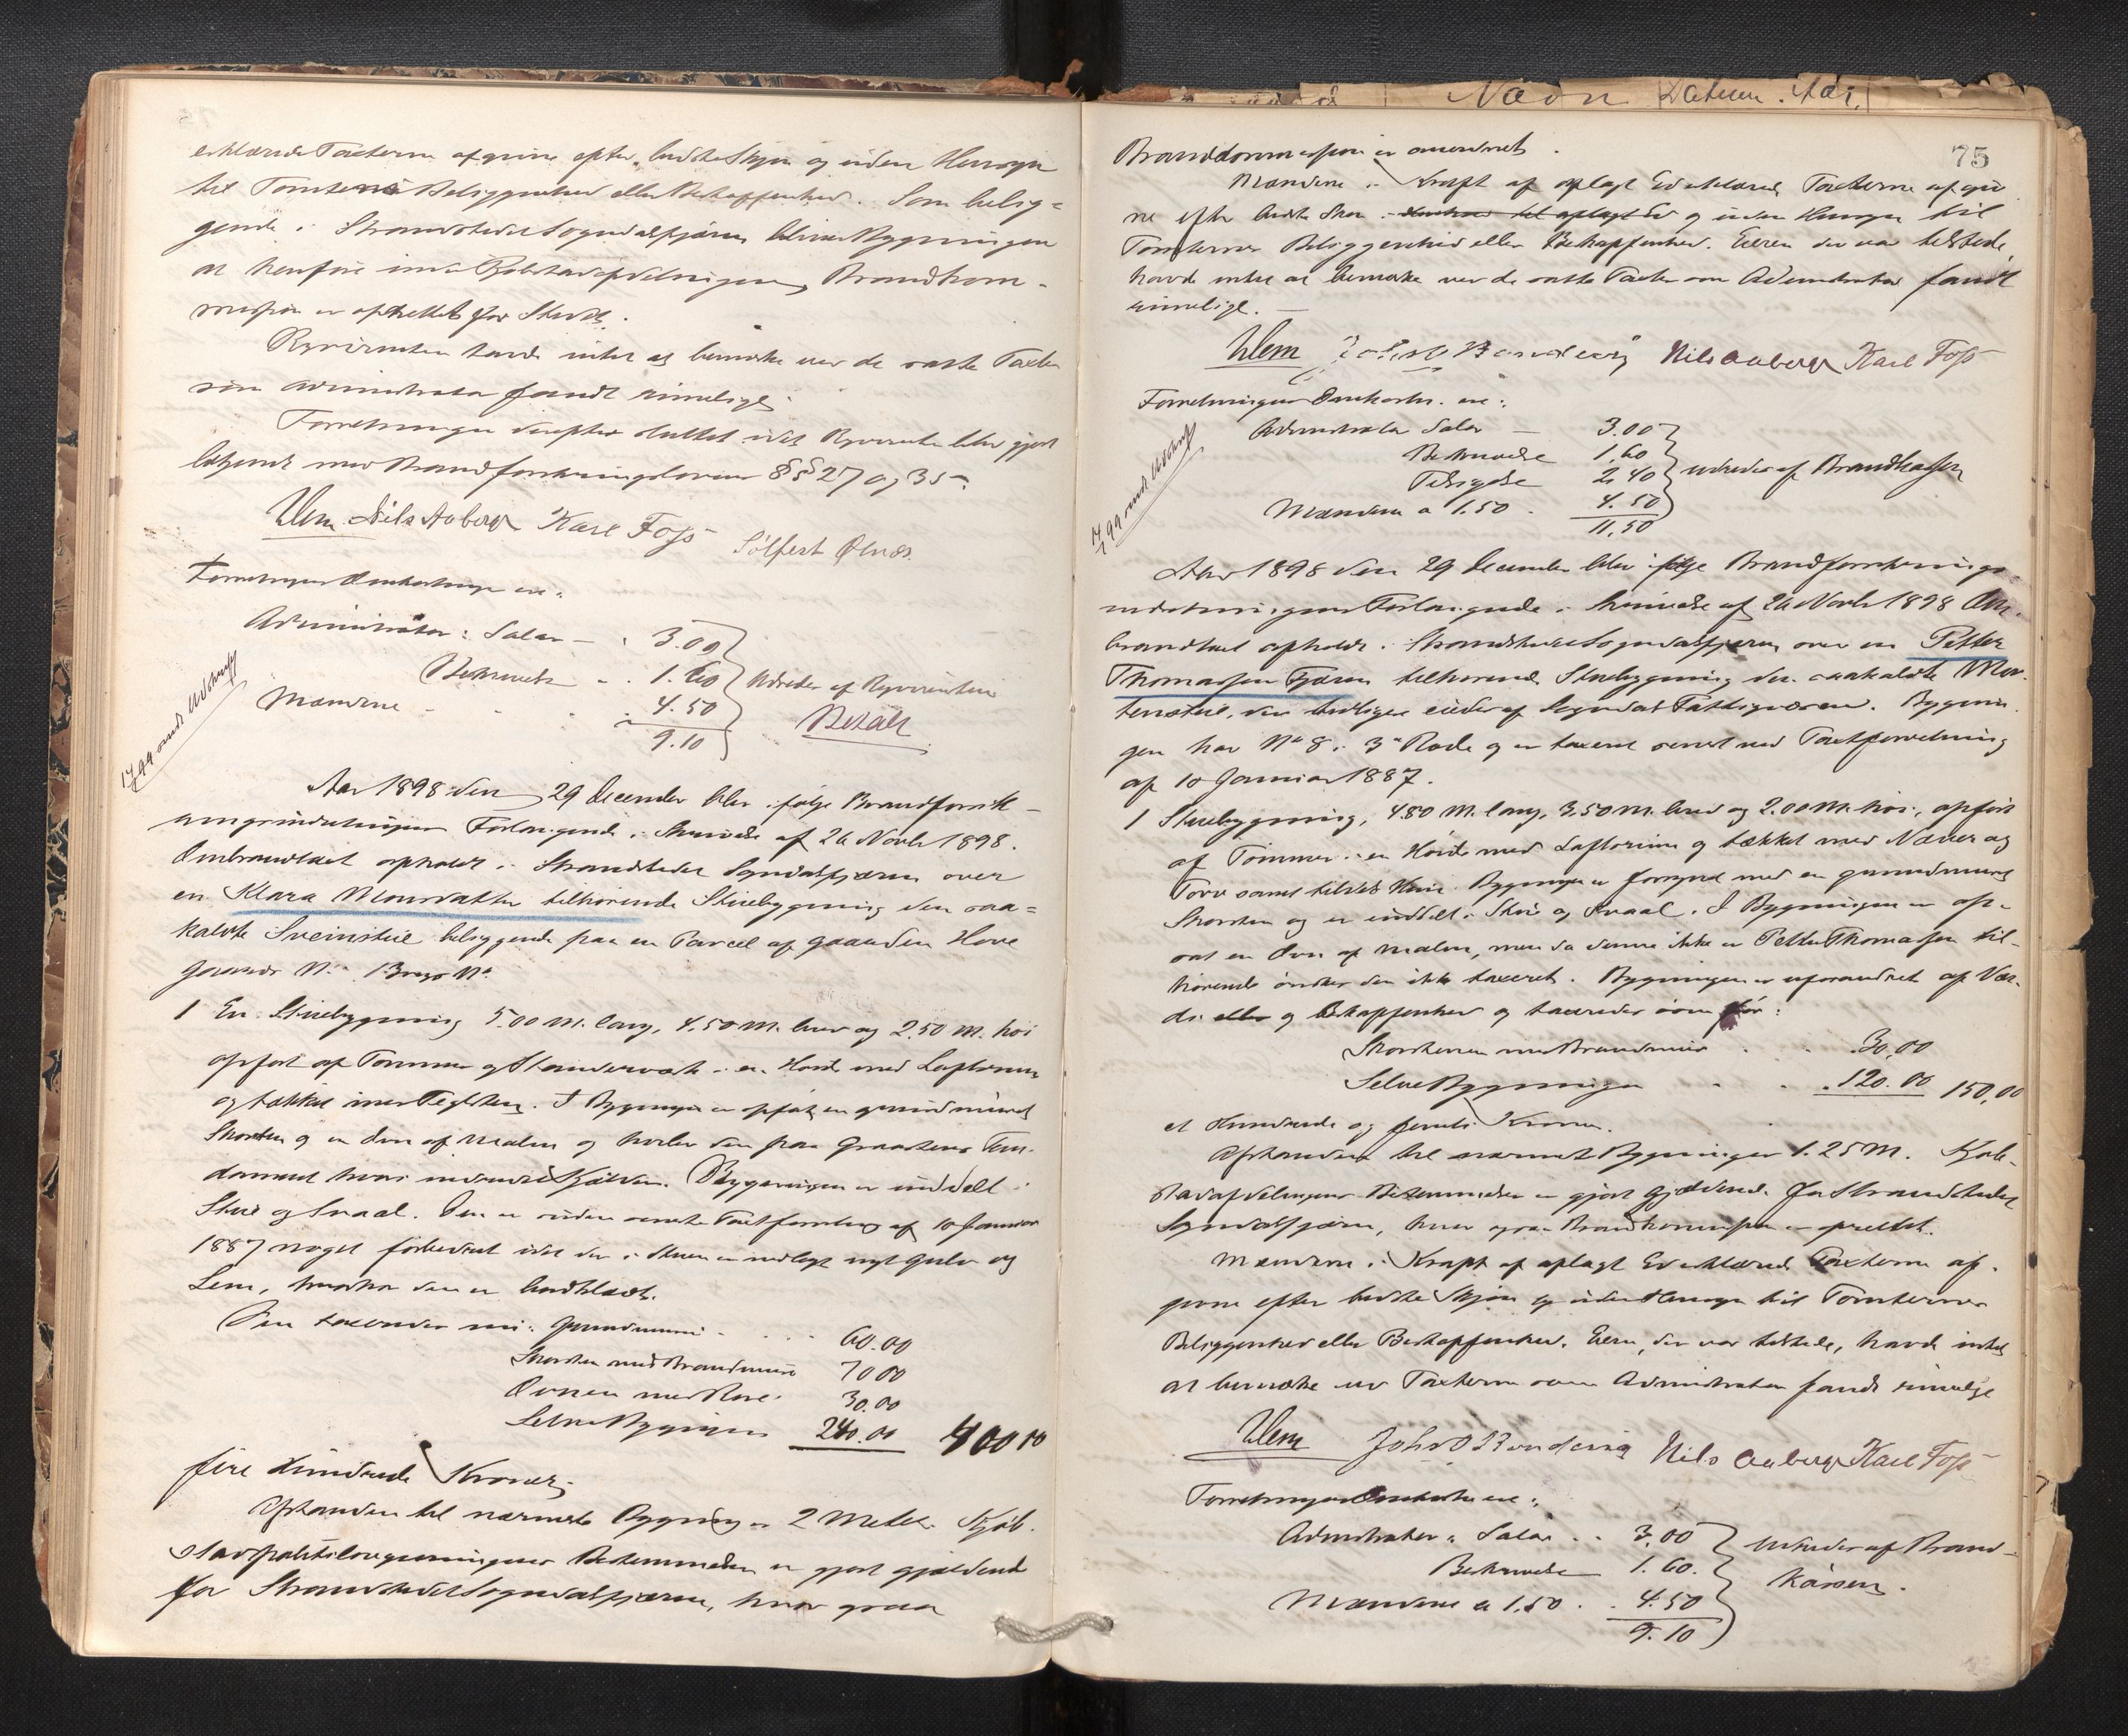 erklærede Taxterne afgivne efter bedste Skjøn og uden Hensyn
til Tomtens Beliggenhed eller Beskaffenhed. Som belig=
gende i Strandstedet Sogndalsfjæren bliver Bygningen
at henføre ind Kjøbstadafdelingen, Brandkom-
mission er oprettet for Stedet.
Rekvirenten havde intet at bemærke ved de satte Taxter
som Administrator fandt rimelige.
Forretningen derefter sluttet idet Rekvirenten blev gjort
bekjendt med Brandforsikringslovens §§ 27 og 35.
Ulem Nils Aaberge Karl Foss Sölfest Ølnæs.
Forretningens Omkostninger ere:
Administrator: Salær - 3.00
Beskrivelse - 1.60 Udredes af Rekvirenten
Mændene - 4.50 Betalt
9.10
17/1 99 sendt Udskrift
Aar 1898 den 29 December blev ifølge Brandforsik-
ringsindretningens Forlangende i Skrivelse af 26 Novbr 1898.
Ombrandtaxt afholdt i Strandstedet Sogndalsfjæren over
en Klara Monsdatter tilhørende Stuebygning den saa=
kaldte Sveinstue beliggende paa en Parcel af Gaarden Hove
Gaards No. Brugs No.
1 En Stuebygning 5.00 M. lang, 4.50 M. bred og 2.50 M. høi
opført af Tømmer og Standerværk i en Høide med Loftsrum
og tækket med Teglsten. I Bygningen er opført en grundmuret
Skorsten og en Ovn af Malm og hviler den paa Graastens Fun-
dament hvori indredet Kjælder. Bygningen er inddelt i
Stue og Sval. Den er siden seneste Taxtforretning af 10 Januar
1887 noget forbedret idet der i Stuen er nedlagt nyt Gulv og
Lem, hvorhos den er bordklædt.
Den taxeredes nu: Grundmuren - 60.00
Skorsten med Brandmure 70 00
Ovnen med Rør 30.00
Selve Bygningen 240.00 400 00
fire Hundrede Kroner.
Afstanden til nærmeste Bygning er 2 Meter. Kjøb-
stadpolitilovgivningens Bestemmelser er gjort gjældende
for Strandstedet Sogndalsfjæren, hvor ogsaa
Nævn Datum. Aar.
75
Brandkommission er anordnet.
Mændene i Kraft af aflagt Ed erklærede Taxterne afgiv
ne efter bedste Skjøn og uden Hensyn til
Tomternes Beliggenhed eller Beskaffenhed. Eieren der var tilstede
havde intet at bemærke ved de satte Taxter som Administrator fandt
rimelige.
Ulem Nils Aaberge Karl Foss
Forretningens Omkostn. ere:
Administrator Salær - 3.00
Beskrivelse 1.60
Tilsigelse 2,40 udredes af Brandkassen
Mændene a 1.50 4.50
11,50
17/1 99 sendt Udskrift
Aar 1898 den 29 December blev ifølge Brandforsikrings
indretningens Forlangende i Skrivelse af 26 Novbr 1898 Om-
brandtaxt afholdt i Strandstedet Sogndalsfjæren over en Petter
Thomassen Fjæren tilhørende Stuebygning den saakaldte Mor-
tenstue, den tidligere eiedes af Sogndals Fattigvæsen. Bygnin-
gen har No 8 i 3die Rode og er taxeret senest ved Taxtforretning
af 10 Januar 1887.
1 Stuebygning, 4.80 M. lang, 3.50 M. bred og 2.00 M. høi, opført
af Tømmer i en Høide med Loftsrum og tækket med Næver og
Torv samt tildels Heller. Bygningen er forsynet med en grundmuret
Skorsten og er inddelt i Stue og Sval. I Bygningen er op-
sat en Ovn af Malm, men da denne ikke er Petter Thomassen til-
hørende ønskes den ikke taxeret. Bygningen er uforandret af Vær-
di eller og Beskaffenhed og taxeredes som før:
Skorstenen med Brandmur 30,00
Selve Bygningen 120.00 150,00
et Hundrede og femti Kroner.
Afstanden til nærmeste Bygninger 1.25 M. Kjøb-
stadafdelingens Bestemmelser er gjort gjældende for Strandstedet
Sogndalsfjæren, hvor ogsaa Brandkommission er oprettet.
Mændene i Kraft af aflagt Ed erklærede Taxterne af-
givne efter bedste Skjøn og uden Hensyn til Tomternes
Beliggenhed eller Beskaffenhed. Eieren, der var tilstede, havde intet
at bemærke ved Taxterne som Administrator fandt rimelige
Ulem Joh. O Nils Aaberge Karl Foss
Forretningens Omkostn. ere:
Administrator: Salær 3.00 Udredes af Brand-
Beskrivelse 1.60. kassen.
Mændene a 1,50 4.50
9.10